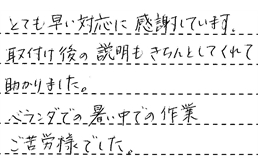 とても早い対応に感謝しています.
取付け後の説明もきちんとしてくれて
助かりました。
ベランダでの暑い中での作業
ご苦労様でした。